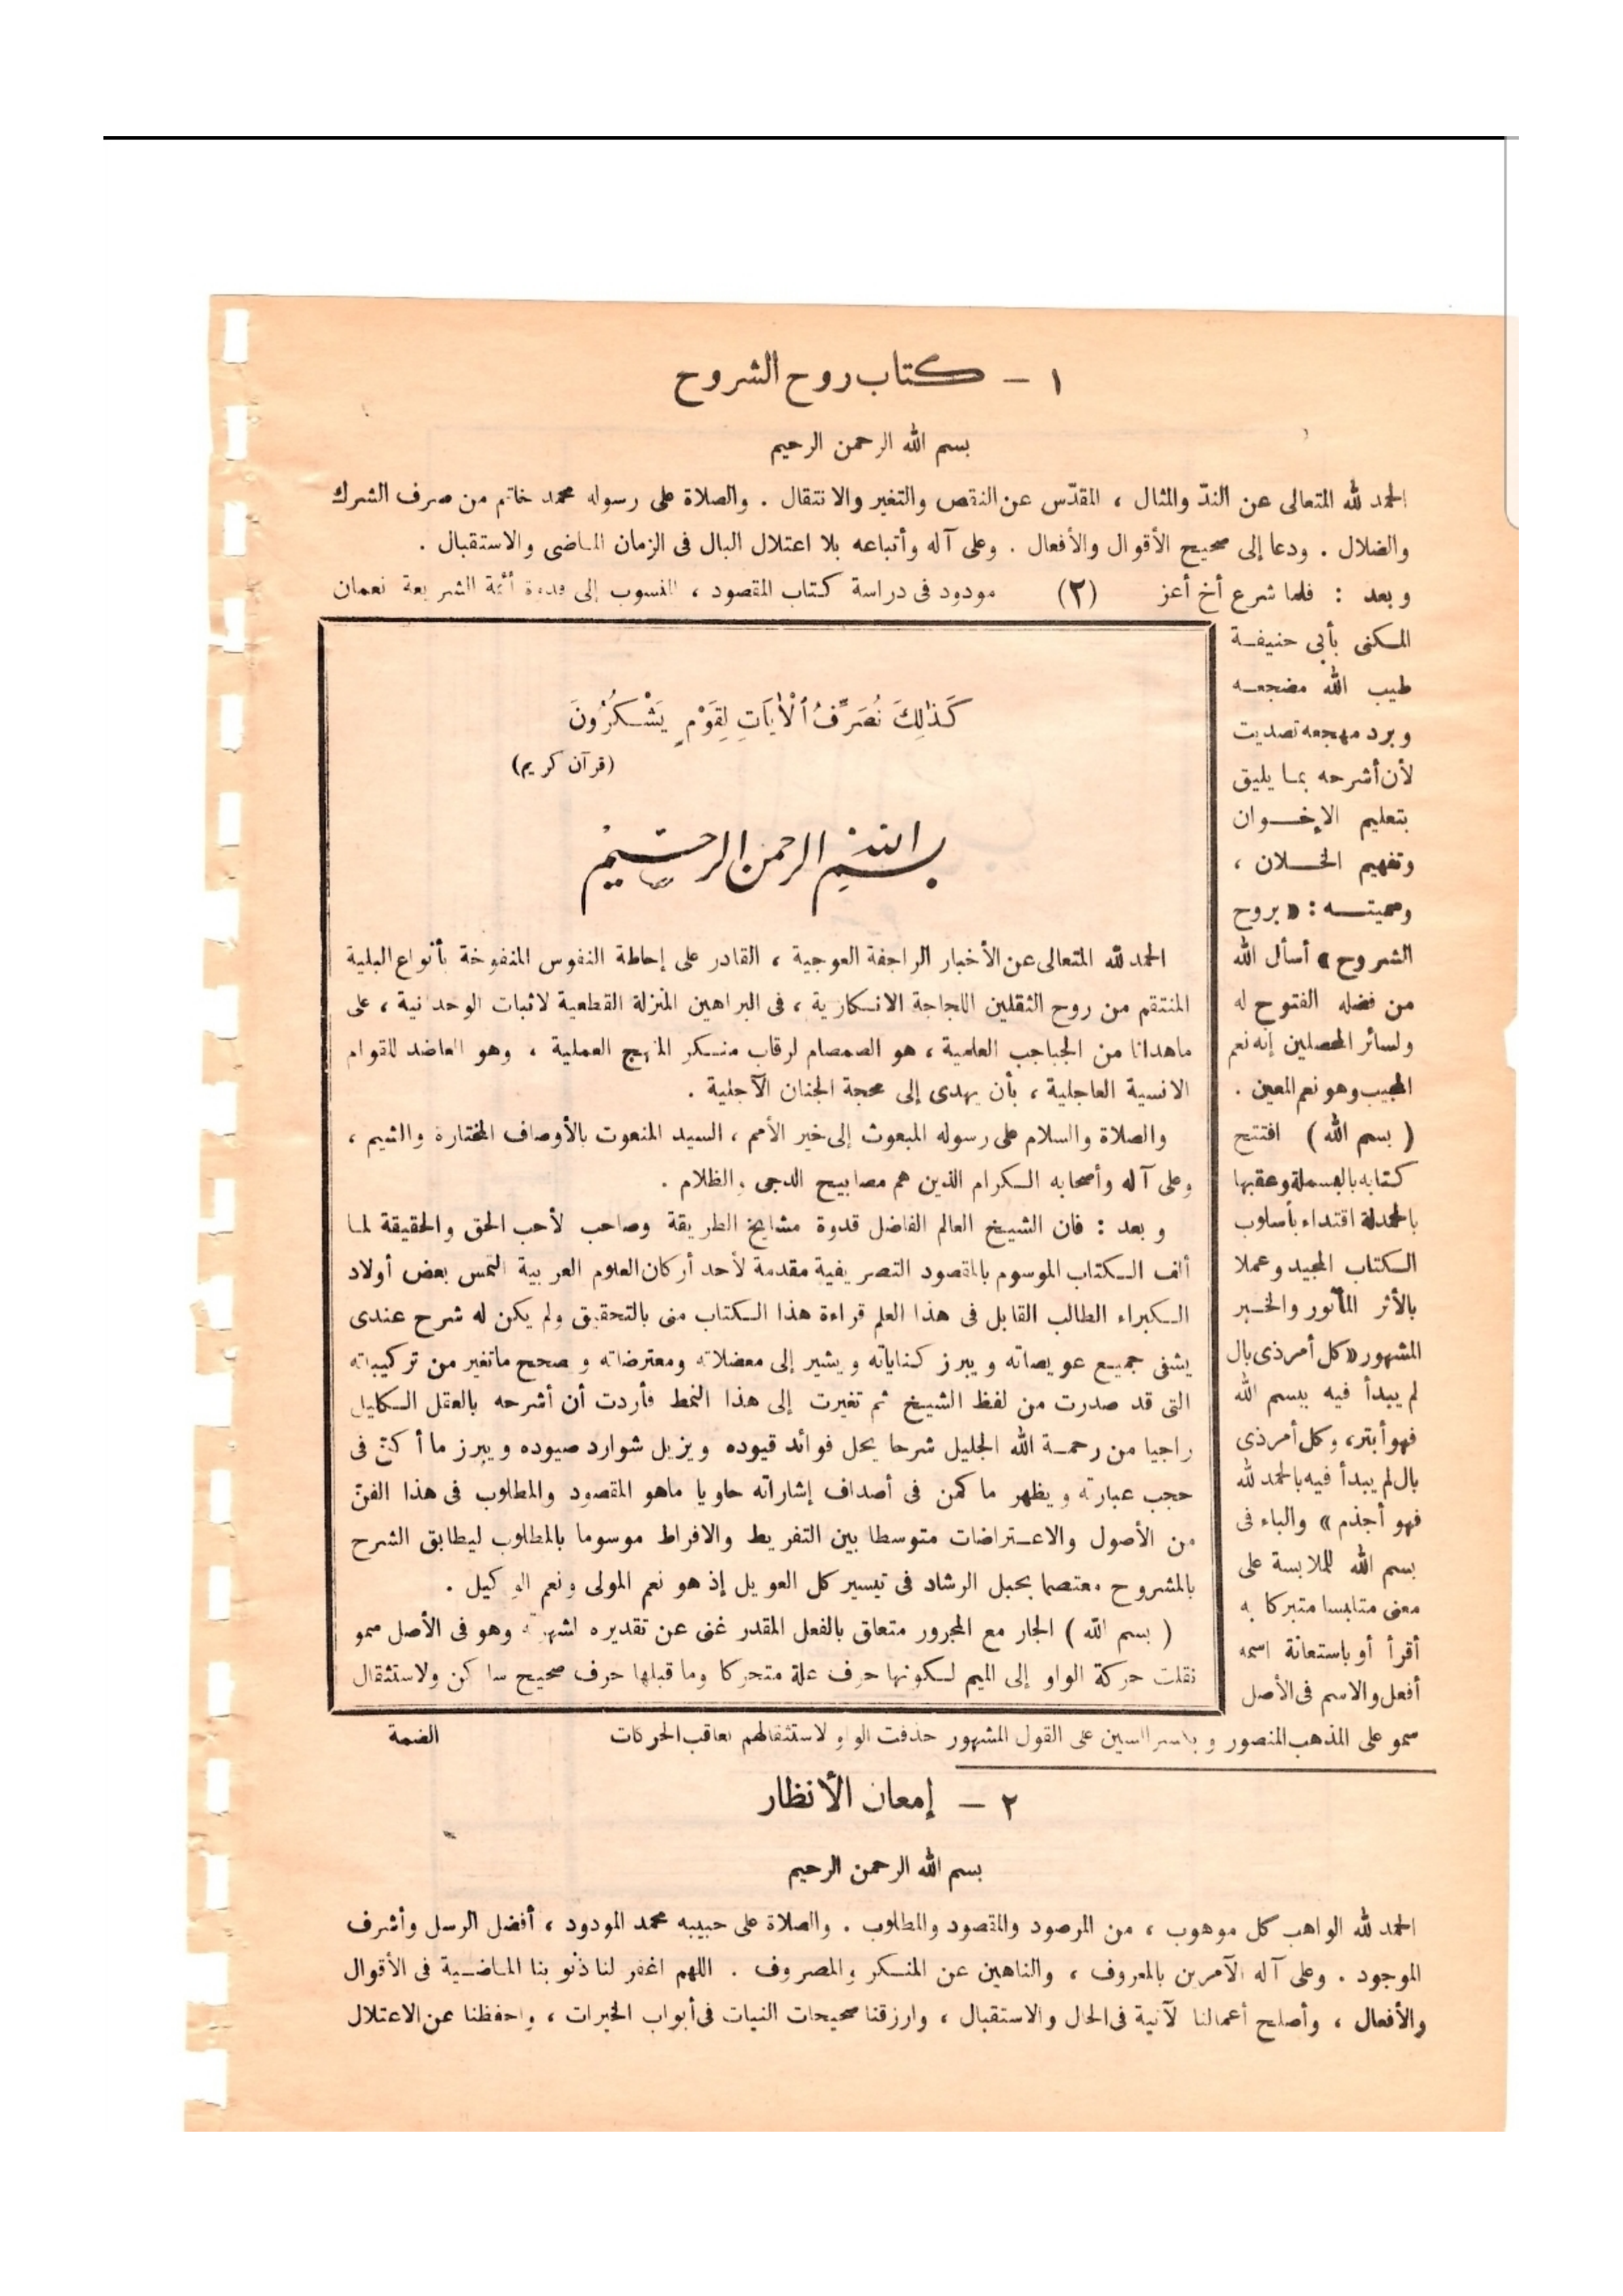 ١ - كتاب روح الشروح
بسم الله الرحمن الرحيم
الحمد لله المتعالى عن الندّ والمثال ، المقدّس عن النقص والتغير والانتقال . والصلاة على رسوله محمد خاتم من صرف الشرك
والضلال . ودعا إلى صحيح الأقوال والأفعال . وعلى آله وأتباعه بلا اعتلال البال فى الزمان الماضى والاستقبال .
وبعد : فلما شرع أخ أعز (٢) مودود فى دراسة كتاب المقصود ، المنسوب إلى قدوة أئمة الشريعة نعمان
المكنى بأبى حنيفة
طيب الله مضجعه
وبرد مهجعه تصديت
لأن أشرحه بما يليق
بتعليم الإخوان
وتفهيم الخلان ،
وسميته : « بروح
الشروح » أسأل الله
من فضله الفتوح له
ولسائر المحصلين إنه نعم
المجيب وهو نعم المعين .
( بسم الله ) افتتح
كتابه بالبسملة وعقبها
بالحمدلة اقتداء بأسلوب
الكتاب المجيد وعملا
بالأثر المأثور والخبر
المشهور « كل أمر ذى بال
لم يبدأ فيه ببسم الله
فهو أبتر، وكل أمر ذى
بال لم يبدأ فيه بالحمد لله
فهو أجذم » والباء فى
بسم الله للملابسة على
معنى متلبسا متبركا به
أقرأ أو باستعانة اسمه
أفعل والاسم فى الأصل
سمو على المذهب المنصور وبكسر السين على القول المشهور حذفت الواو لاستثقالهم تعاقب الحركات الضمة
كَذٰلِكَ نُصَرِّفُ ٱلْآيَاتِ لِقَوْمٍ يَشْكُرُونَ
(قرآن كريم)
بسم الله الرحمن الرحيم
الحمد لله المتعالى عن الأخبار الراجفة العوجية ، القادر على إحاطة النفوس المنفوخة بأنواع البلية
المنتقم من روح الثقلين اللجاجة الانكارية ، فى البراهين المنزلة القطعية لاثبات الوحدانية ، على
ماهدانا من الجباجب العلمية ، هو الصمصام لرقاب منكر المنهج العملية ، وهو العاضد للقوام
الانسية العاجلية ، بأن يهدى إلى محجة الجنان الآجلية .
والصلاة والسلام على رسوله المبعوث إلى خير الأمم ، السيد المنعوت بالأوصاف المختارة والشيم ،
وعلى آله وأصحابه الكرام الذين هم مصابيح الدجى والظلام .
وبعد : فان الشيخ العالم الفاضل قدوة مشايخ الطريقة وصاحب لأحب الحق والحقيقة لما
ألف الكتاب الموسوم بالمقصود التصريفية مقدمة لأحد أركان العلوم العربية التمس بعض أولاد
الكبراء الطالب القابل فى هذا العلم قراءة هذا الكتاب منى بالتحقيق ولم يكن له شرح عندى
يشفى جميع عويصاته ويبرز كناياته ويشير إلى معضلاته ومعترضاته وصحح ماتغير من تركيباته
التى قد صدرت من لفظ الشيخ ثم تغيرت إلى هذا النمط فأردت أن أشرحه بالعقل الكليل
راجيا من رحمة الله الجليل شرحا يحل فوائد قيوده ويزيل شوارد صيوده ويبرز ما أكنّ فى
حجب عبارته ويظهر ما كمن فى أصداف إشاراته حاويا ماهو المقصود والمطلوب فى هذا الفنّ
من الأصول والاعتراضات متوسطا بين التفريط والافراط موسوما بالمطلوب ليطابق الشرح
بالمشروح معتصما بحبل الرشاد فى تيسير كل العويل إذ هو نعم المولى ونعم الوكيل .
( بسم الله ) الجار مع المجرور متعلق بالفعل المقدر غنى عن تقديره لشهرته وهو فى الأصل سمو
نقلت حركة الواو إلى الميم لكونها حرف علة متحركا وما قبلها حرف صحيح ساكن ولاستثقال
٢ - إمعان الأنظار
بسم الله الرحمن الرحيم
الحمد لله الواهب كل موهوب ، من المرصود والمقصود والمطلوب . والصلاة على حبيبه محمد المودود ، أفضل الرسل وأشرف
الموجود . وعلى آله الآمرين بالمعروف ، والناهين عن المنكر والمصروف . اللهم اغفر لنا ذنوبنا الماضية فى الأقوال
والأفعال ، وأصلح أعمالنا لآنية فى الحال والاستقبال ، وارزقنا صحيحات النيات فى أبواب الخيرات ، واحفظنا عن الاعتلال